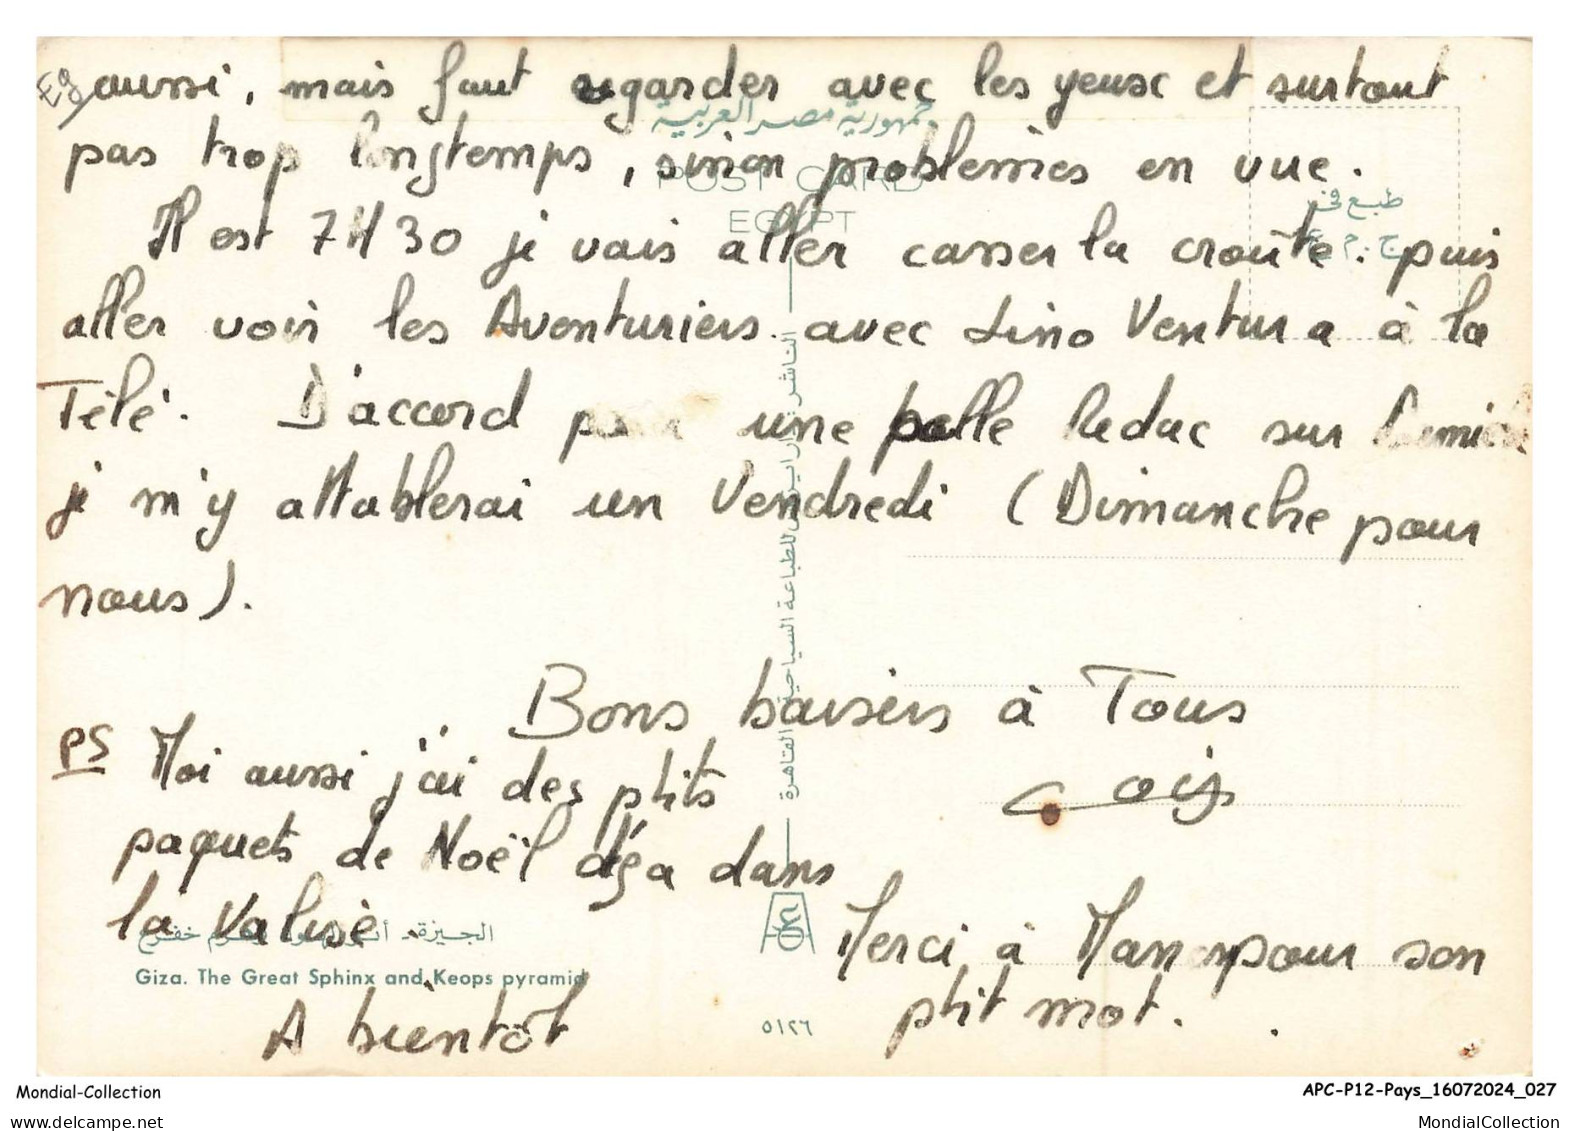 Eg aussi, mais faut regarder avec les yeux et surtout
جمهورية مصر العربية
pas trop longtemps, sinon problèmes en vue.
POST CARD
EGYPT
طبع في
ج.م.ع
Il est 7H30 je vais aller casser la croûte. puis
aller voir les Aventuriers avec Lino Ventura à la
Télé. D'accord pour une belle Redac sur
je m'y attablerai un Vendredi (Dimanche pour
nous).
Bons baisers à Tous
PS Moi aussi j'ai des ptits
paquets de Noël déja dans
la Valise.
الجيزة
Giza. The Great Sphinx and Keops pyramid
A bientôt
Merci à Manon pour son
ptit mot.
٥١٢٦
Mondial-Collection
APC-P12-Pays_16072024_027
delcampe.net
MondialCollection